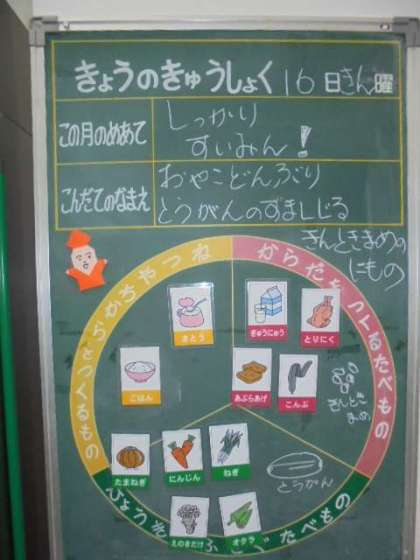 きょうのきゅうしょく 16日きん曜
この月のめあて
しっかり
すいみん!
こんだてのなまえ
おやこどんぶり
とうがんのすましじる
きんときまめの
にもの
ちからやねつ
をつくるもの
からだをつくるたべもの
さとう
ぎゅうにゅう
とりにく
ごはん
あぶらあげ
こんぶ
きんとき
まめ
たまねぎ
にんじん
ねぎ
とうがん
えのきだけ
オクラ
たべもの